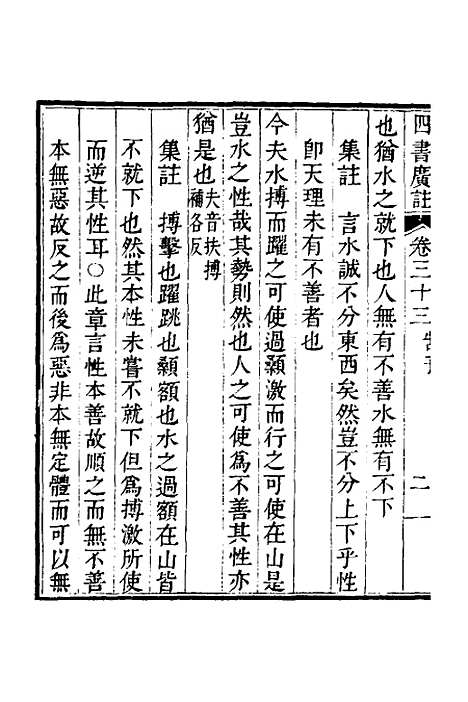 四書廣註 卷三十三 二
也猶水之就下也人無有不善水無有不下
集註 言水誠不分東西矣然豈不分上下乎性
卽天理未有不善者也
今夫水搏而躍之可使過顙激而行之可使在山是
豈水之性哉其勢則然也人之可使為不善其性亦
猶是也夫音扶搏補各反
集註 搏擊也躍跳也顙額也水之過額在山皆
不就下也然其本性未嘗不就下但為搏激所使
而逆其性耳○此章言性本善故順之而無不善
本無惡故反之而後為惡非本無定體而可以無